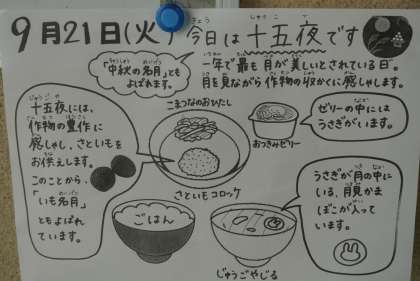 9月21日(火) 今日は十五夜です
きょう じゅうごや
一年で最も月が美しいとされている日。
月を見ながら作物の収かくに感しゃします。
「中秋の名月」とも
よばれます。
十五夜には、
作物の豊作に
感しゃし、さといもを
お供えします。
このことから、
「いも名月」
ともよばれ
ています。
こまつなのおひたし
おつきみゼリー
ゼリーの中には
うさぎがいます。
さといもコロッケ
うさぎが月の中に
いる、月見かま
ぼこが入って
います。
ごはん
じゅうごやじる